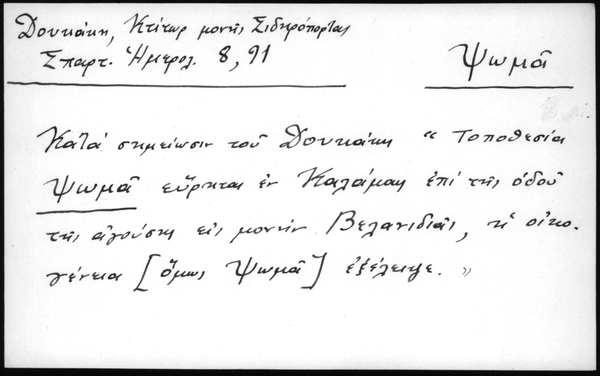 Δουκάκη, Κτίτωρ μονῆς Σιδηρόπορτας
Σπαρτ. Ἡμερολ. 8, 91
Ψωμᾶ
Κατά σημείωσιν τοῦ Δουκάκη "Τοποθεσία
Ψωμᾶ εὕρηται ἐν Καλάμαις ἐπί τῆς ὁδοῦ
τῆς ἀγούσης εἰς μονήν Βελανιδιᾶς, ἡ οἰκο-
γένεια [ὅμως Ψωμᾶ] ἐξέλειψε."